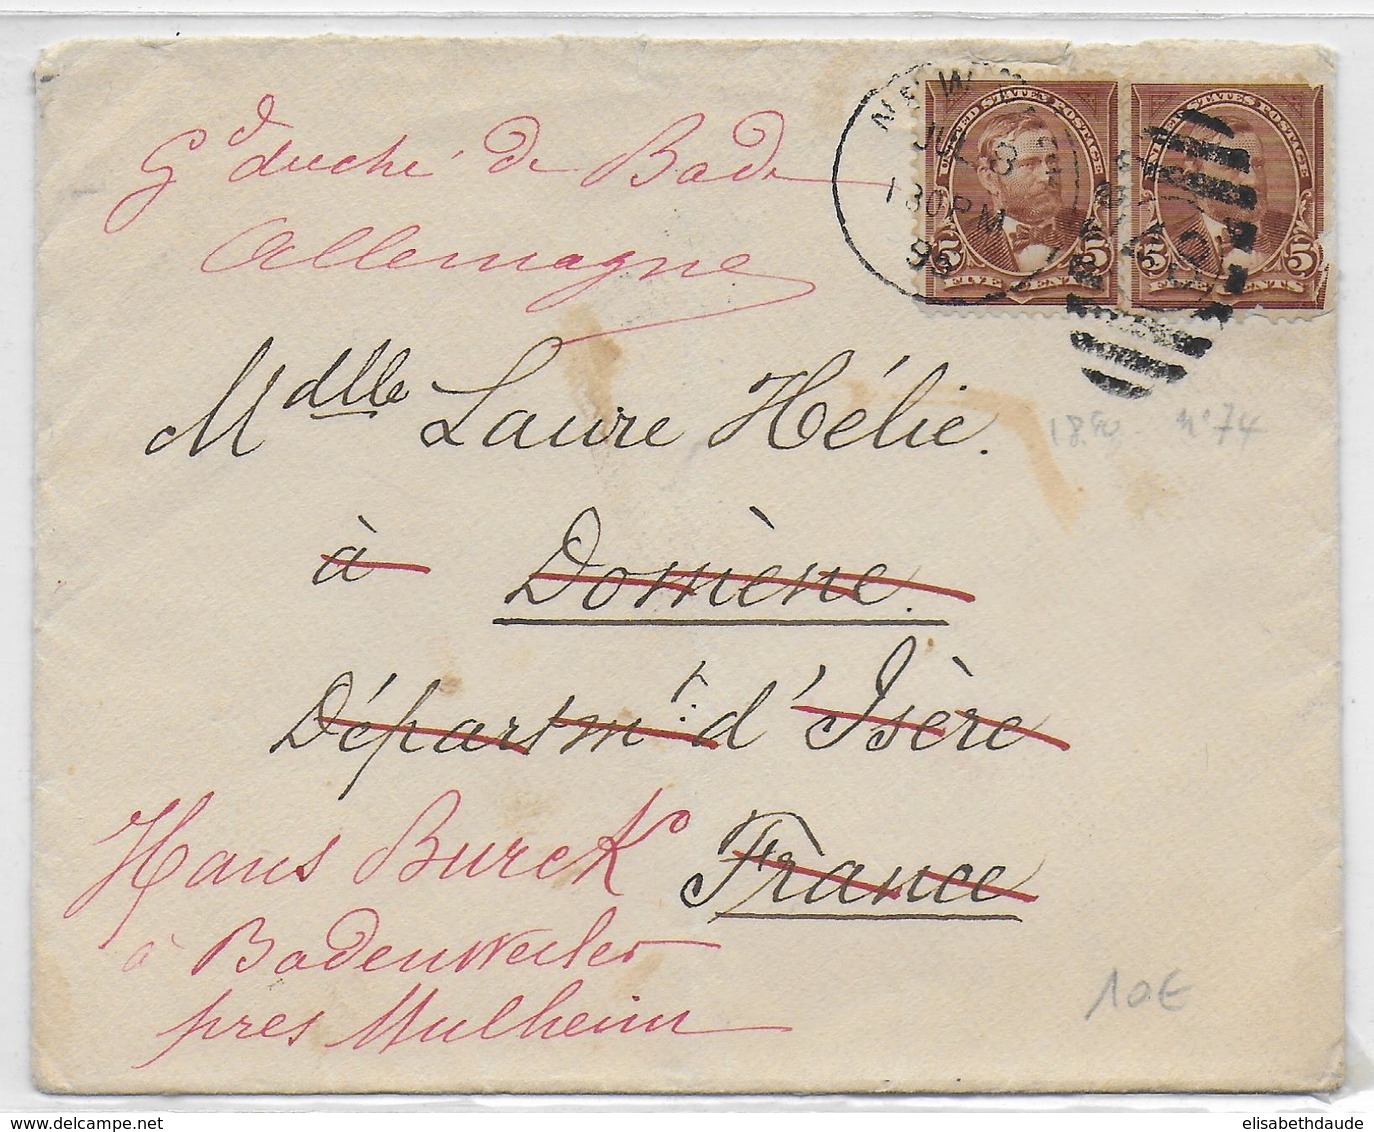 Gd duché de Bade
Allemagne
NEW
JUL 8
1 30 PM
96
UNITED STATES POSTAGE
5 5
FIVE CENTS
UNITED STATES POSTAGE
5 5
FIVE CENTS
Mdlle Laure Hélie.
1890 n° 74
à Domène.
Départmt: d'Isère
Hans Burck France
à Badenweiler
près Mulheim
10€
www.delcampe.net
elisabethdaude